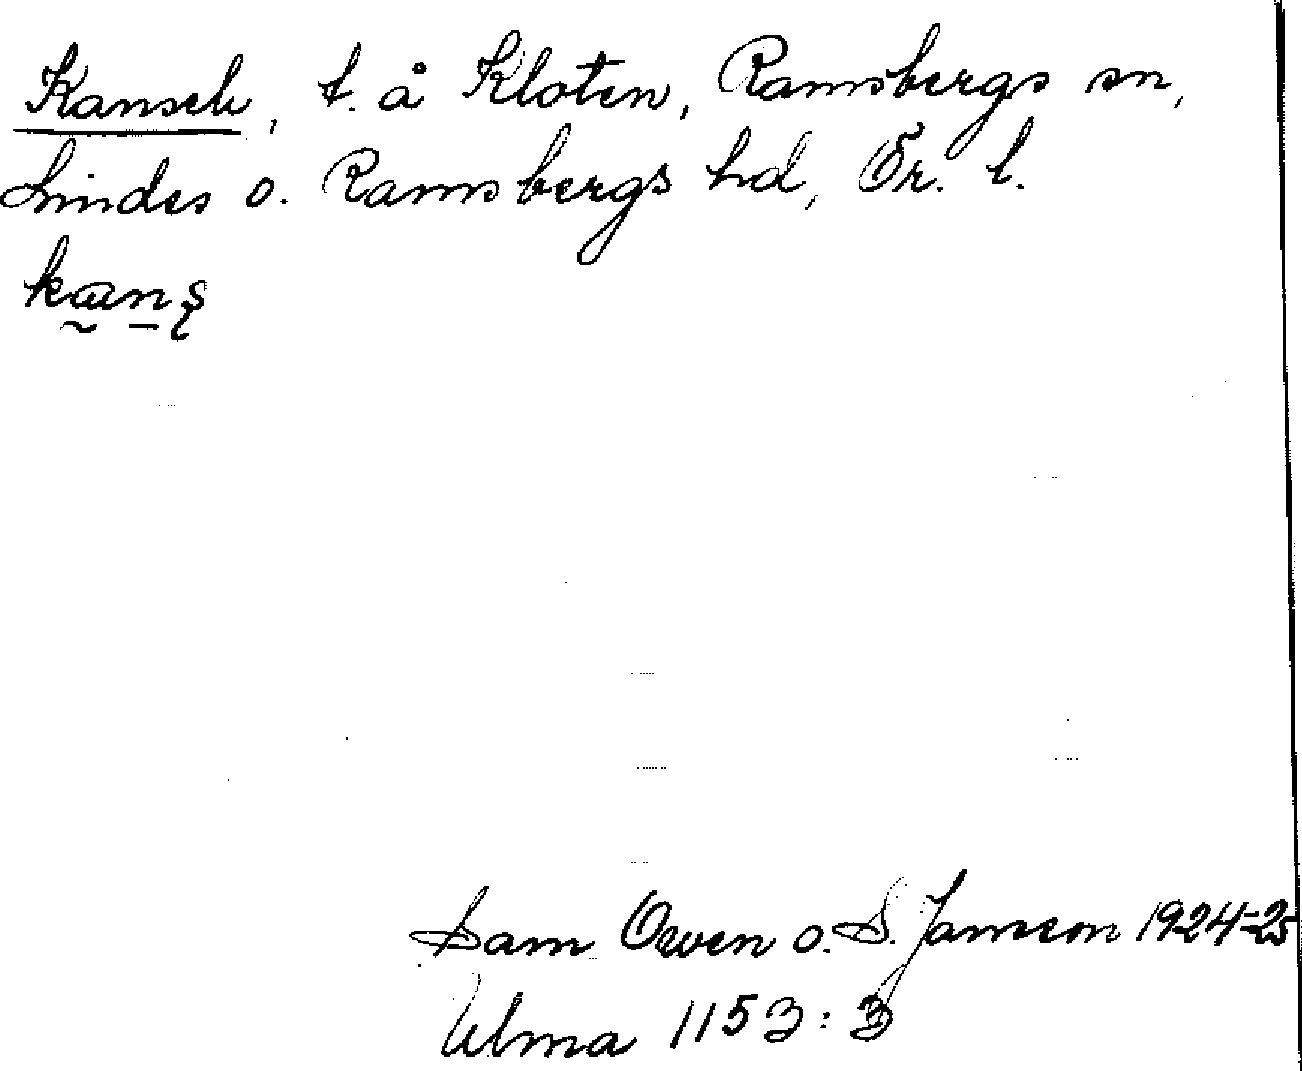 Kansch, t. å Kloten, Ramsbergs sn,
Lindes o. Ramsbergs hd, Ör. l.
Sam Owen o. S. Janson 1924-25
Ulma 1153:3